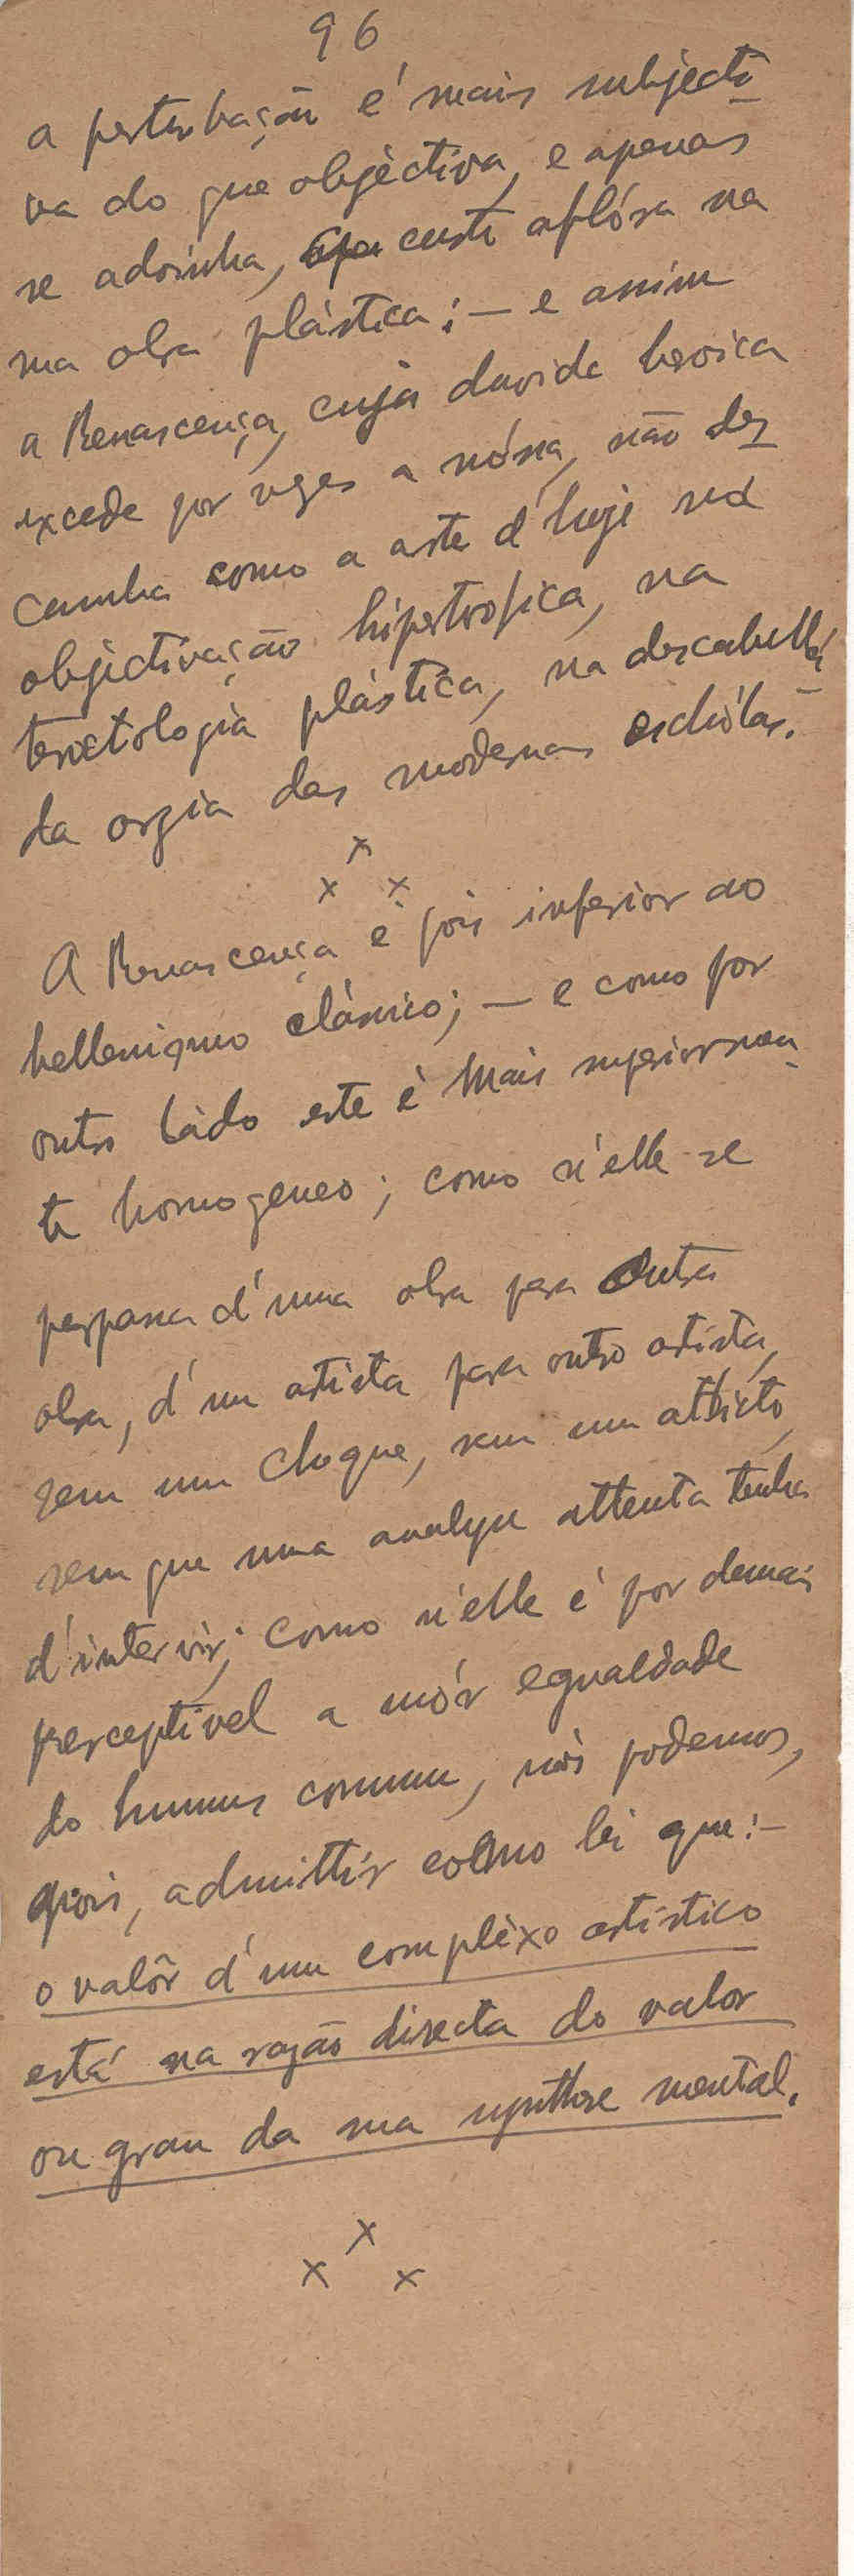 96
a perturbação é mais subjecti
va do que objèctiva, e apenas
se adivinha, custo aflóra na
ma obra plástica; — e assim
a Renascença, cuja duvida heroica
excede por vezes a nóssa, não des
camba como a arte d'hoje na
objectivação hipertrofica, na
teratologia plástica, na descabella
da orgia das modernas eschólas.
x x x
A Renascença é pois inferior ao
hellenismo clássico; — e como por
outro làdo este è mais superiormen
te homogeneo; como n'elle se
perpassa d'uma obra para outra
obra, d'um artista para outro artista,
sem um choque, sem um attricto,
sem que uma analyse attenta tenha
d'intervir; como n'elle é por demais
perceptivel a mór egualdade
do humus commum, nós podemos,
pois, admittir como lei que: –
o valôr d'um complèxo artistico
está na razão directa do valor
ou grau da sua synthese mental.
x x x